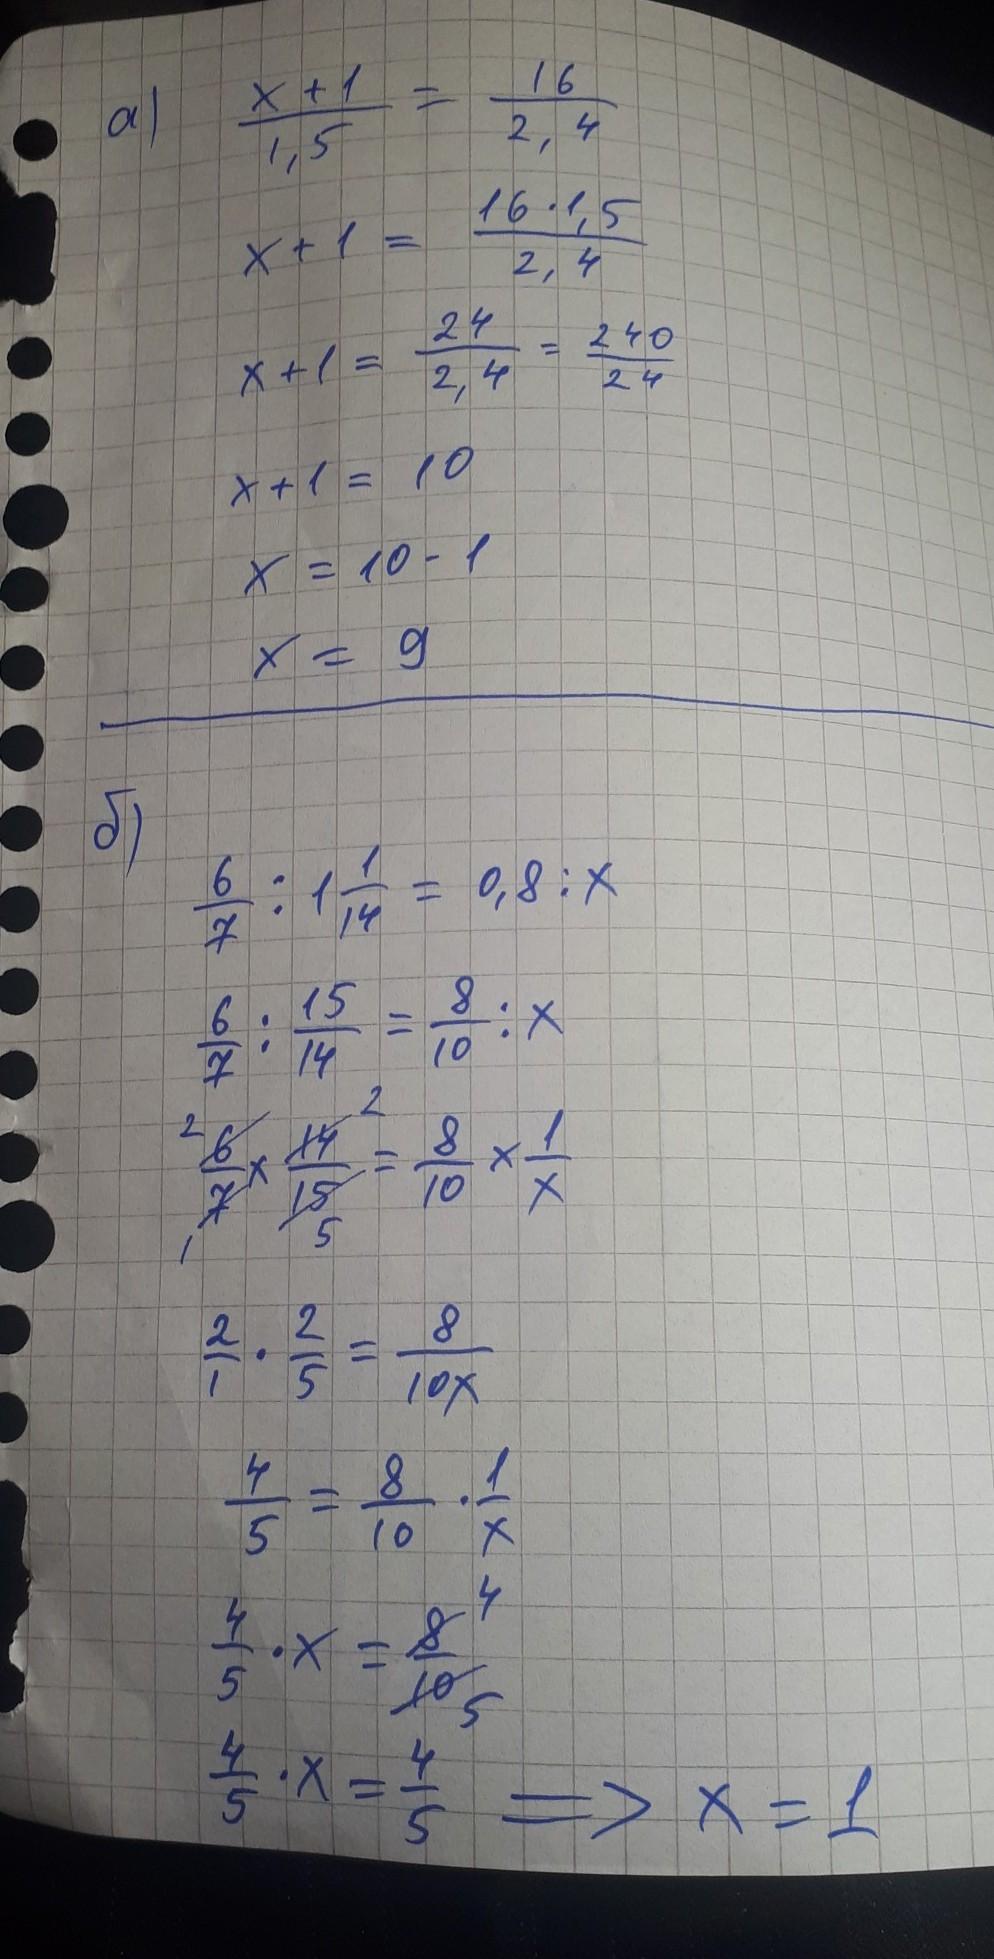 а) x+1/1,5 = 16/2,4
x+1 = 16·1,5/2,4
x+1 = 24/2,4 = 240/24
x+1 = 10
x = 10-1
x = 9
б)
6/7 : 1 1/14 = 0,8 : x
6/7 : 15/14 = 8/10 : x
2 6/7 1 x 14/15 2 5 = 8/10 x 1/x
2/1 · 2/5 = 8/10x
4/5 = 8/10 · 1/x
4/5 · x = 8/10 4 5
4/5 · x = 4/5 => x = 1